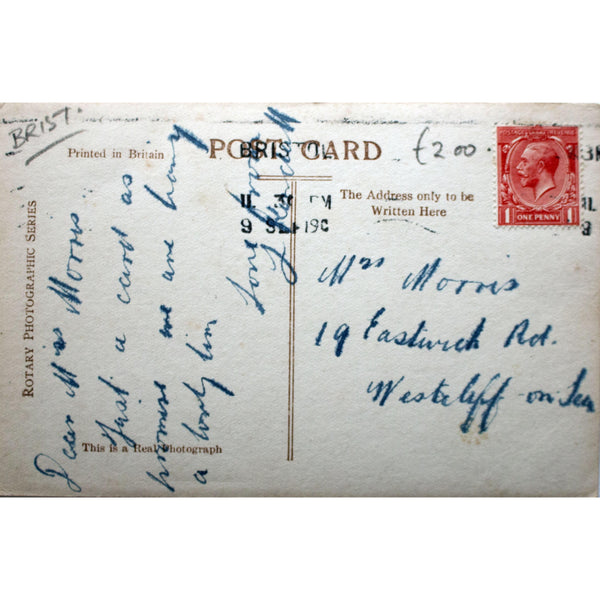 BRIST.
Printed in Britain
POST CARD
BRISTOL
£2 00
POSTAGE REVENUE
1 ONE PENNY 1
The Address only to be
Written Here
30 PM
9
ROTARY PHOTOGRAPHIC SERIES
This is a Real Photograph
Dear Mrs Morris
Just a card as
promise we are having
a lovely tim
Love from
Mrs Morris
19 Eastwick Rd.
Westcliff-on-Sea